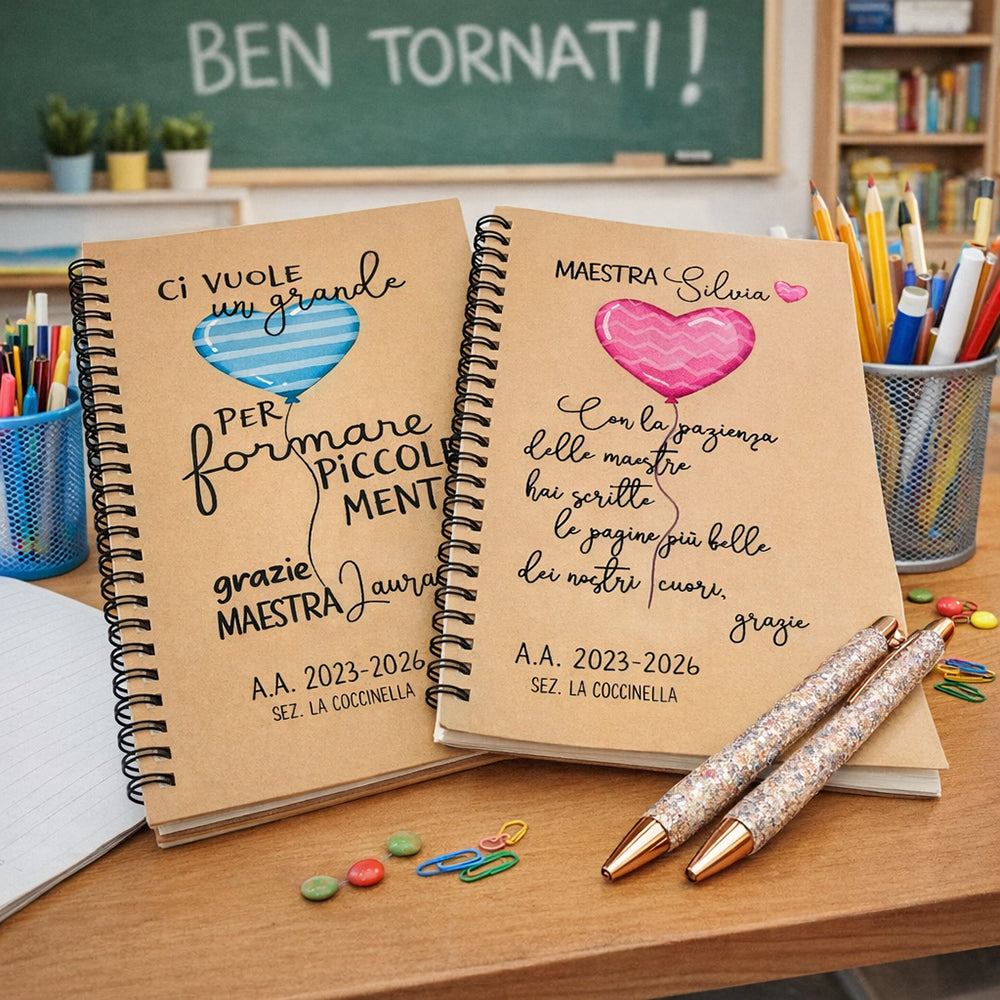 BEN TORNATI!
Ci VUOLE
un grande
PER
formare
PiCCOLE
MENT
grazie
MAESTRA Laura
A.A. 2023-2026
SEZ. LA COCCINELLA
MAESTRA Silvia
Con la pazienza
delle maestre
hai scritte
le pagine più belle
dei nostri cuori,
grazie
A.A. 2023-2026
SEZ. LA COCCINELLA